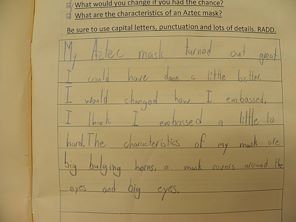 What would you change if you had the chance?
What are the characteristics of an Aztec mask?
Be sure to use capital letters, punctuation and lots of details. RADD.
My Aztec mask turned out great
I could have done a little better.
I would changed how I embossed,
I think I embrossed a little to
hard. The characteristics of my mask are
big bulging horns, a mask covers around the
eyes and big eyes.